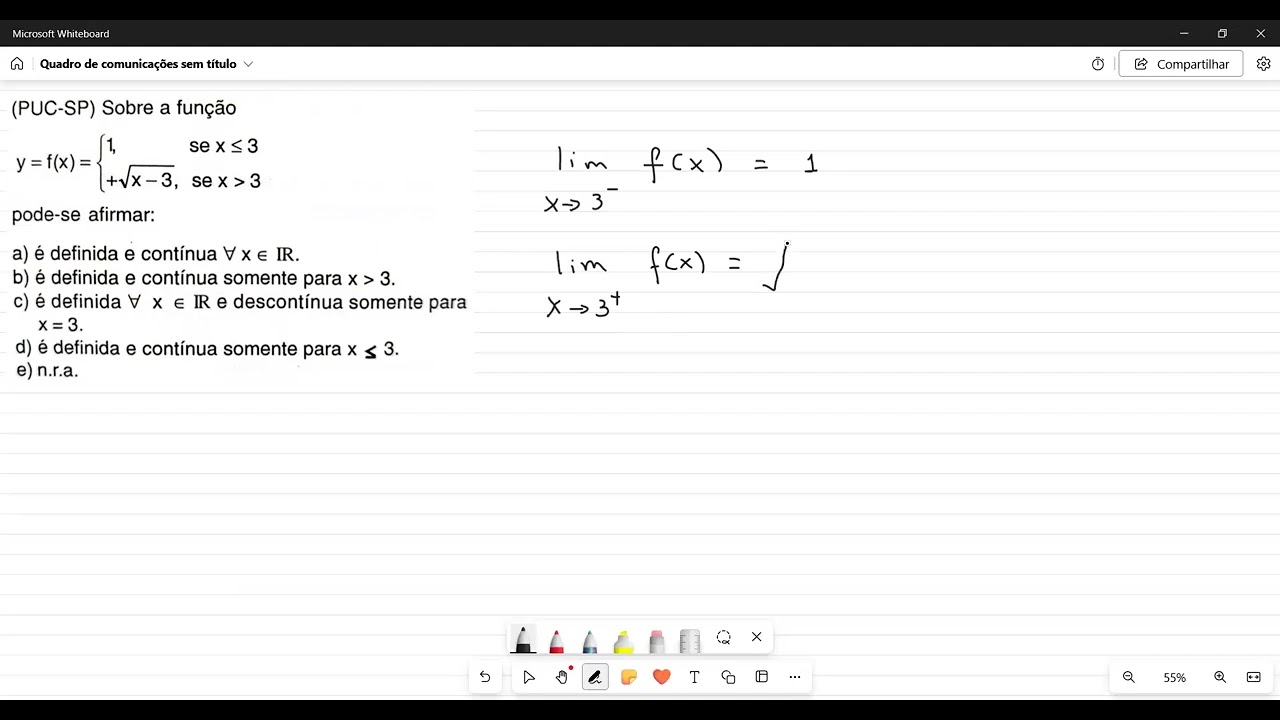 Microsoft Whiteboard
Quadro de comunicações sem título
Compartilhar
(PUC-SP) Sobre a função
y = f(x) = { 1, se x ≤ 3
+√x – 3, se x > 3
pode-se afirmar:
a) é definida e contínua ∀ x ∈ IR.
b) é definida e contínua somente para x > 3.
c) é definida ∀ x ∈ IR e descontínua somente para
x = 3.
d) é definida e contínua somente para x ≤ 3.
e) n.r.a.
lim f(x) = 1
x→3⁻
lim f(x) = √
x→3⁺
55%